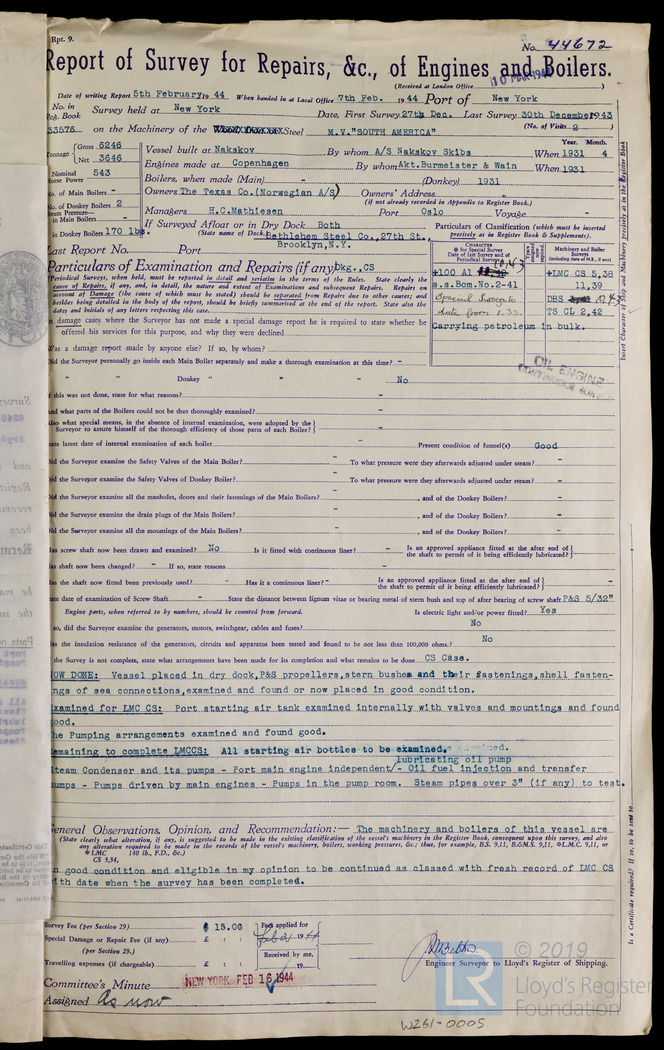 Rpt. 9.
No. 44672
Report of Survey for Repairs, &c., of Engines and Boilers.
(Received at London Office
Date of writing Report 5th February 19 44 When handed in at Local Office 7th Feb. 19 44 Port of New York
No. in Survey held at New York Date, First Survey 27th Dec. Last Survey 30th December 1943
Reg. Book
33576 on the Machinery of the Steel M.V."SOUTH AMERICA" (No. of Visits 2
Tonnage Gross 6246 Vessel built at Nakskov By whom A/S Nakskov Skibs When 1931 4
Year. Month.
Net 3646
Nominal Horse Power 543 Engines made at Copenhagen By whom Akt.Burmeister & Wain When 1931
Boilers, when made (Main) (Donkey) 1931
No. of Main Boilers -
No. of Donkey Boilers 2 Owners The Texas Co.(Norwegian A/S) Owners' Address
(if not already recorded in Appendix to Register Book.)
Steam Pressure— in Main Boilers - Managers H.C.Mathiesen Port Oslo Voyage -
in Donkey Boilers 170 lbs. If Surveyed Afloat or in Dry Dock Both
(State name of Dock.) Bethlehem Steel Co.,27th St.,
Brooklyn,N.Y.
Last Report No. Port
Particulars of Classification (which must be inserted
precisely as in Register Book & Supplements).
CHARACTER
* for Special Survey
Date of last Survey and of
Periodical Survey.
Machinery and Boiler
Surveys
(including date of N.B., if any)
+100 A1
+LMC CS 5,38
s.s.Bom.No.2-41
11,39
DBS 12.43
Special Surveys
date from 1.33
TS CL 2,42
Carrying petroleum in bulk.
OIL ENGINE
CONTINUOUS SURVEY
Particulars of Examination and Repairs (if any) Dkg.,CS
Periodical Surveys, when held, must be reported in detail and seriatim in the terms of the Rules. State clearly the
cause of Repairs, if any, and, in detail, the nature and extent of Examinations and subsequent Repairs. Repairs on
account of Damage (the cause of which must be stated) should be separated from Repairs due to other causes; and
besides being detailed in the body of the report, should be briefly summarised at the end of the report. State also the
dates and initials of any letters respecting this case.
In damage cases where the Surveyor has not made a special damage report he is required to state whether he
offered his services for this purpose, and why they were declined
Was a damage report made by anyone else? If so, by whom?
Did the Surveyor personally go inside each Main Boiler separately and make a thorough examination at this time? -
" " Donkey " " " No
If this was not done, state for what reasons? -
And what parts of the Boilers could not be thus thoroughly examined? -
Also what special means, in the absence of internal examination, were adopted by the
Surveyor to assure himself of the thorough efficiency of those parts of each Boiler? -
State latest date of internal examination of each boiler - Present condition of funnel(s) Good
Did the Surveyor examine the Safety Valves of the Main Boiler? - To what pressure were they afterwards adjusted under steam? -
Did the Surveyor examine the Safety Valves of Donkey Boiler? - To what pressure were they afterwards adjusted under steam? -
Did the Surveyor examine all the manholes, doors and their fastenings of the Main Boilers? - , and of the Donkey Boilers? -
Did the Surveyor examine the drain plugs of the Main Boilers? - , and of the Donkey Boilers? -
Did the Surveyor examine all the mountings of the Main Boilers? - , and of the Donkey Boilers? -
Has screw shaft now been drawn and examined? No Is it fitted with continuous liner? - Is an approved appliance fitted at the after end of
the shaft to permit of it being efficiently lubricated? -
Has shaft now been changed? - If so, state reasons
Has the shaft now fitted been previously used? - Has it a continuous liner? - Is an approved appliance fitted at the after end of
the shaft to permit of it being efficiently lubricated? -
State date of examination of Screw Shaft - State the distance between lignum vitæ or bearing metal of stern bush and top of after bearing of screw shaft P&S 5/32"
Engine parts, when referred to by numbers, should be counted from forward. Is electric light and/or power fitted? Yes
If so, did the Surveyor examine the generators, motors, switchgear, cables and fuses? No
Has the insulation resistance of the generators, circuits and apparatus been tested and found to be not less than 100,000 ohms.? No
If the Survey is not complete, state what arrangements have been made for its completion and what remains to be done CS Case.
NOW DONE: Vessel placed in dry dock,P&S propellers,stern bushes and their fastenings,shell fasten-
ings of sea connections,examined and found or now placed in good condition.
Examined for LMC CS: Port starting air tank examined internally with valves and mountings and found
good.
The Pumping arrangements examined and found good.
Remaining to complete LMCCS: All starting air bottles to be examined.
lubricating oil pump
Steam Condenser and its pumps - Port main engine independent/- Oil fuel injection and transfer
pumps - Pumps driven by main engines - Pumps in the pump room. Steam pipes over 3" (if any) to test.
General Observations, Opinion, and Recommendation:— The machinery and boilers of this vessel are
(State clearly what alteration, if any, is suggested to be made in the existing classification of the vessel's machinery in the Register Book, consequent upon this survey, and also
any alteration required to be made in the records of the vessel's machinery, boilers, working pressures, &c.; thus, for example, B.S. 9,11, B.&M.S. 9,11, ✠L.M.C. 9,11, or
✠LMC 140 lb., F.D., &c.)
CS 3,34,
in good condition and eligible in my opinion to be continued as classed with fresh record of LMC CS
with date when the survey has been completed.
Survey Fee (per Section 29) $ 15.00 Fees applied for
Special Damage or Repair Fee (if any) £ : : Feb 2 1944
(per Section 29.) Received by me,
Travelling expenses (if chargeable) £ : : 19
Engineer Surveyor to Lloyd's Register of Shipping.
Committee's Minute NEW YORK FEB 16 1944
Assigned As now
© 2019
Lloyd's Register
Foundation
LR
W261-0005
Insert Character of Ship and Machinery precisely as in the Register Book
Is a Certificate required? If so, to be sent to